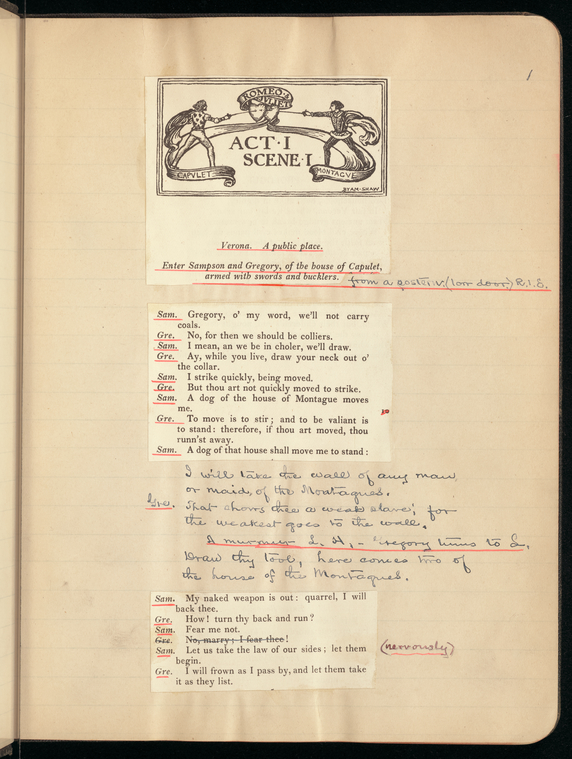 1
ROMEO &
JULIET
ACT·I
SCENE·I
CAPVLET
MONTAGVE
BYAM·SHAW
Verona. A public place.
Enter Sampson and Gregory, of the house of Capulet,
armed with swords and bucklers.
from a (low door) R.I.E.
Sam. Gregory, o' my word, we'll not carry
coals.
Gre. No, for then we should be colliers.
Sam. I mean, an we be in choler, we'll draw.
Gre. Ay, while you live, draw your neck out o'
the collar.
Sam. I strike quickly, being moved.
Gre. But thou art not quickly moved to strike.
Sam. A dog of the house of Montague moves
me.
Gre. To move is to stir; and to be valiant is
to stand: therefore, if thou art moved, thou
runn'st away.
Sam. A dog of that house shall move me to stand:
I will take the wall of any man
or maid of the Montagues.
Gre. That shows thee a weak slave; for
the weakest goes to the wall.
A murmur L. H, - Gregory turns to L.
Draw thy tool, here comes two of
the house of the Montagues.
Sam. My naked weapon is out: quarrel, I will
back thee.
Gre. How! turn thy back and run?
Sam. Fear me not.
Gre. No, marry; I fear thee!
Sam. Let us take the law of our sides; let them
begin.
(nervously)
Gre. I will frown as I pass by, and let them take
it as they list.